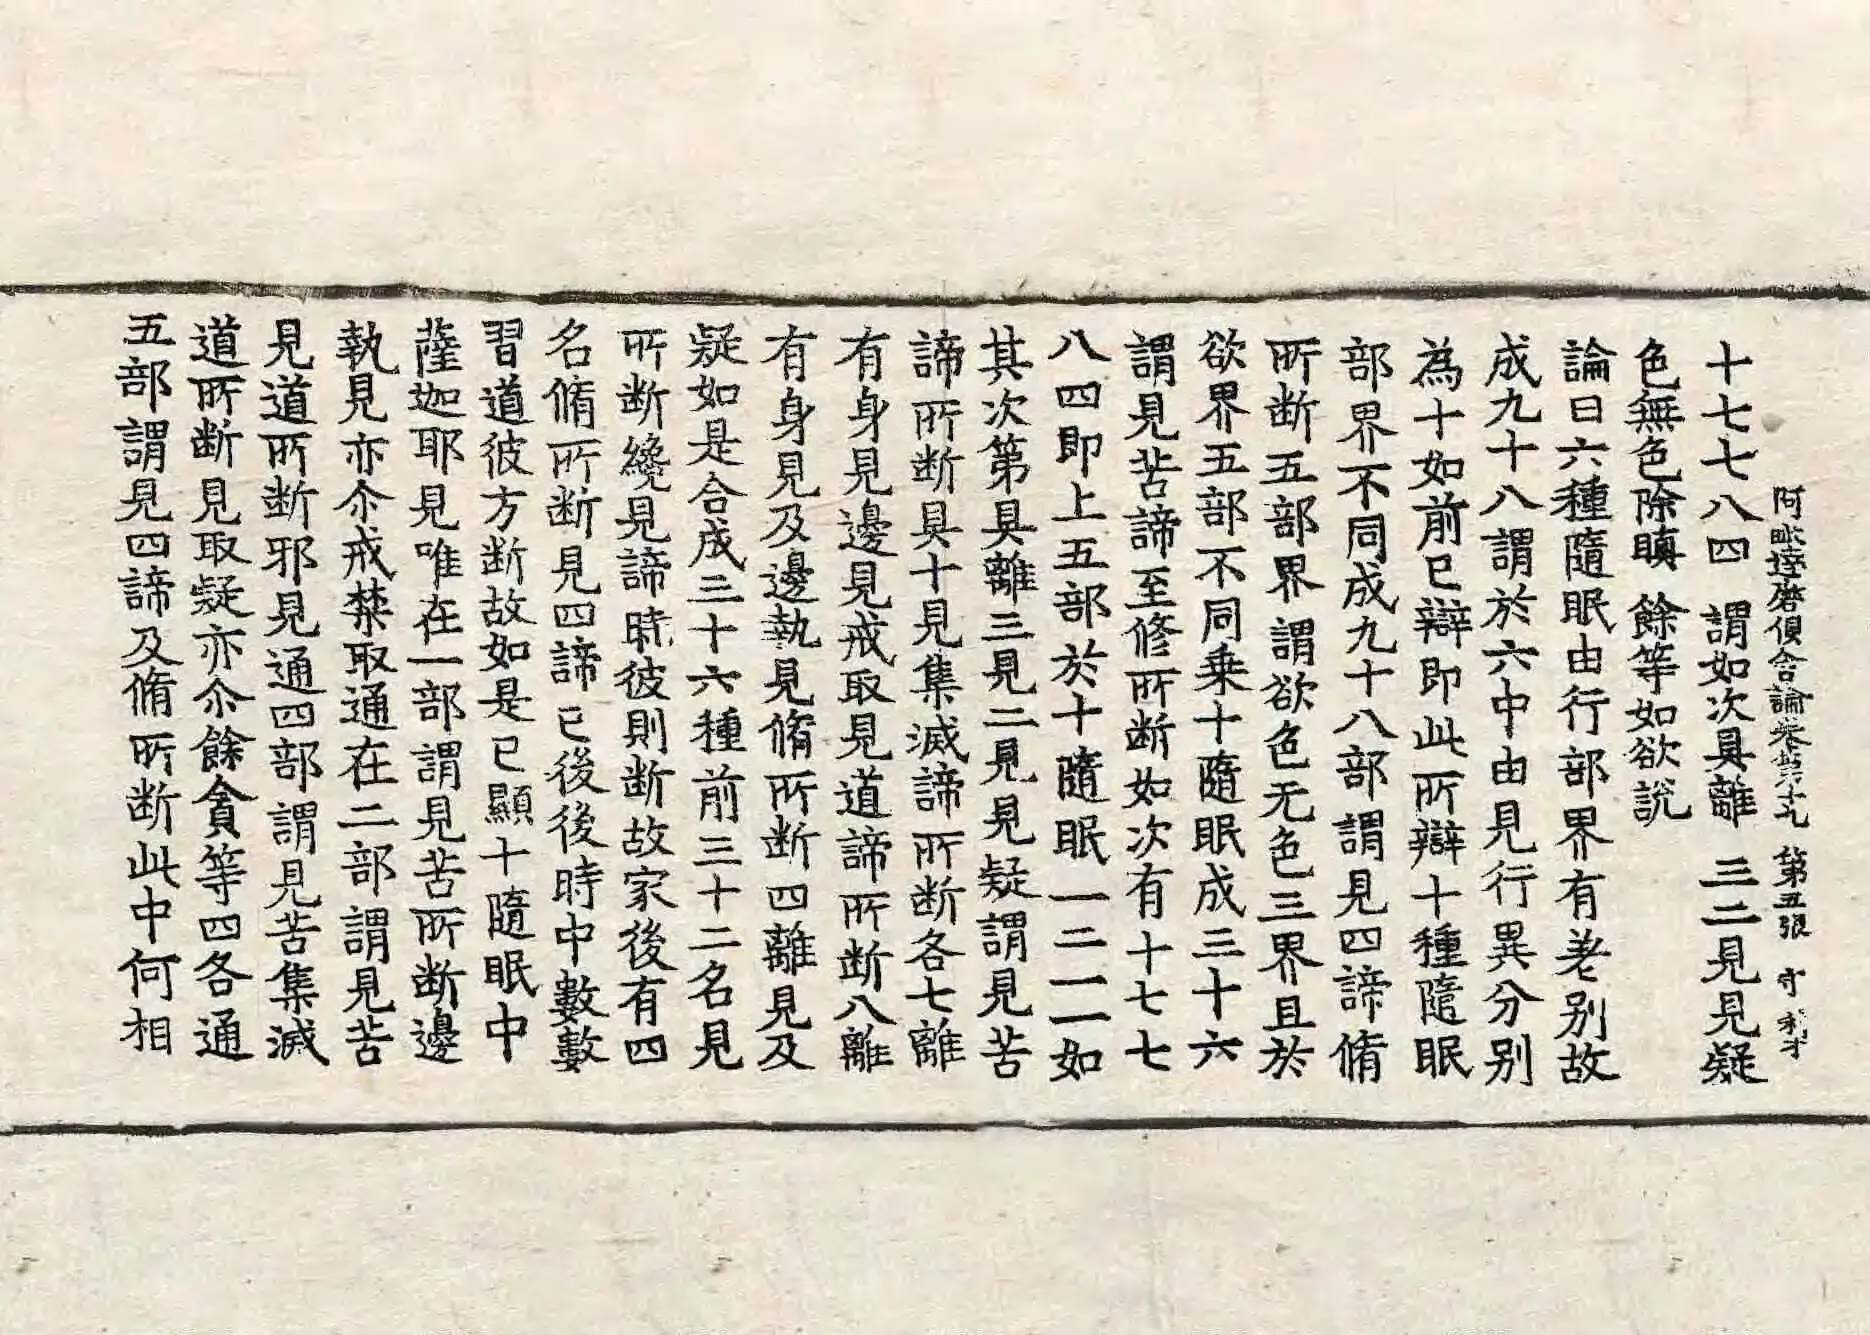 阿毗達磨俱舍論卷第十九　第五張　守
十七七八四　謂如次具離　三二見見疑
色無色除瞋　餘等如欲說
論曰六種隨眠由行部界有差别故
成九十八謂於六中由見行異分别
為十如前已辯即此所辯十種隨眠
部界不同成九十八部謂見四諦脩
所断五部界謂欲色无色三界且於
欲界五部不同乗十隨眠成三十六
謂見苦諦至修所断如次有十七七
八四即上五部於十隨眠一二一一如
其次第具離三見二見見疑謂見苦
諦所断具十見集滅諦所断各七離
有身見邊見戒取見道諦所断八離
有身見及邊執見脩所断四離見及
疑如是合成三十六種前三十二名見
所断纔見諦時彼則断故㝡後有四
名脩所断見四諦已後後時中數數
習道彼方断故如是已顯十隨眠中
薩迦耶見唯在一部謂見苦所断邊
執見亦尒戒禁取通在二部謂見苦
見道所断邪見通四部謂見苦集滅
道所断見取疑亦尒餘貪等四各通
五部謂見四諦及脩所断此中何相